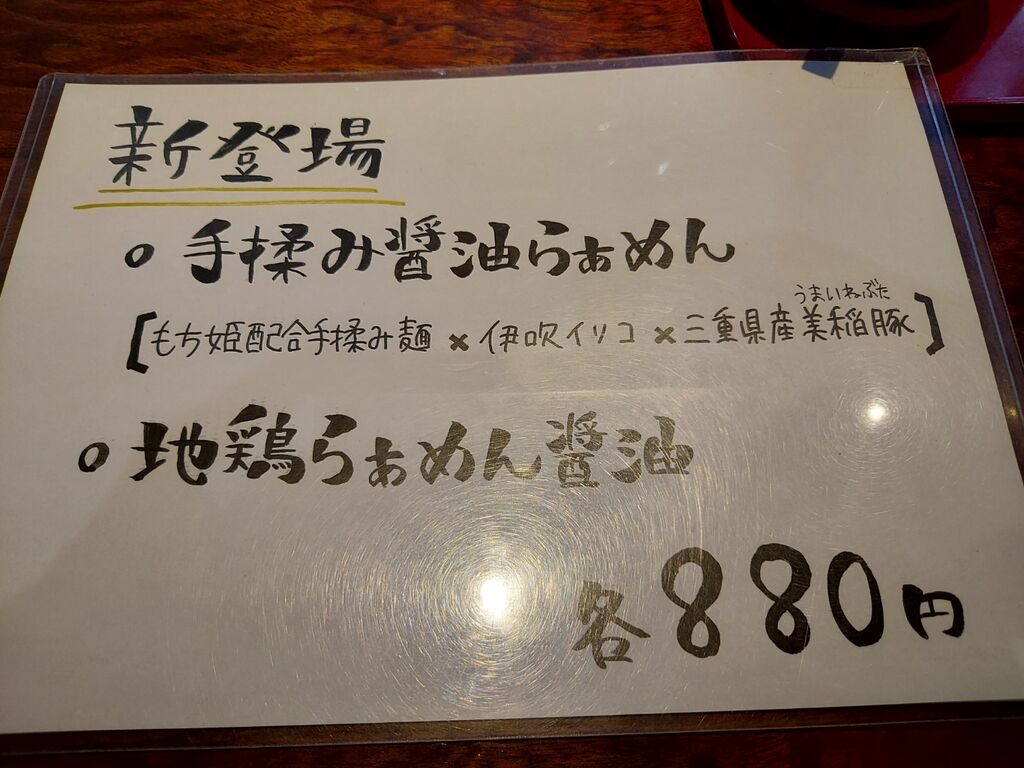 新登場
○ 手揉み醤油らぁめん
うまいねぶた
[もち姫配合手揉み麺 × 伊吹イリコ × 三重県産美稲豚]
○ 地鶏らぁめん醤油
各880円